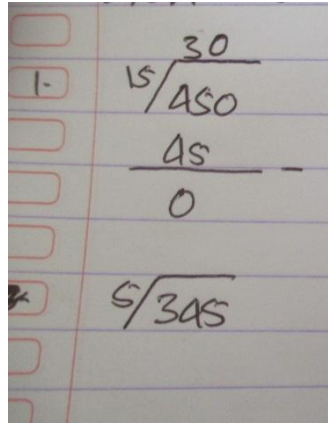 30
1- 15/450
45 -
0
5/345